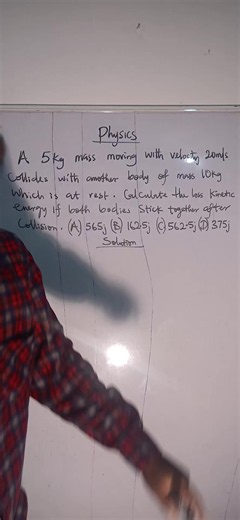 Physics
A 5kg mass moving with velocity 20m/s
Collides with another body of mass 10kg
which is at rest. Calculate the loss kinetic
energy if both bodies stick together after
Collision. (A) 565j (B) 162.5j (C) 562.5j (D) 375j
Solution